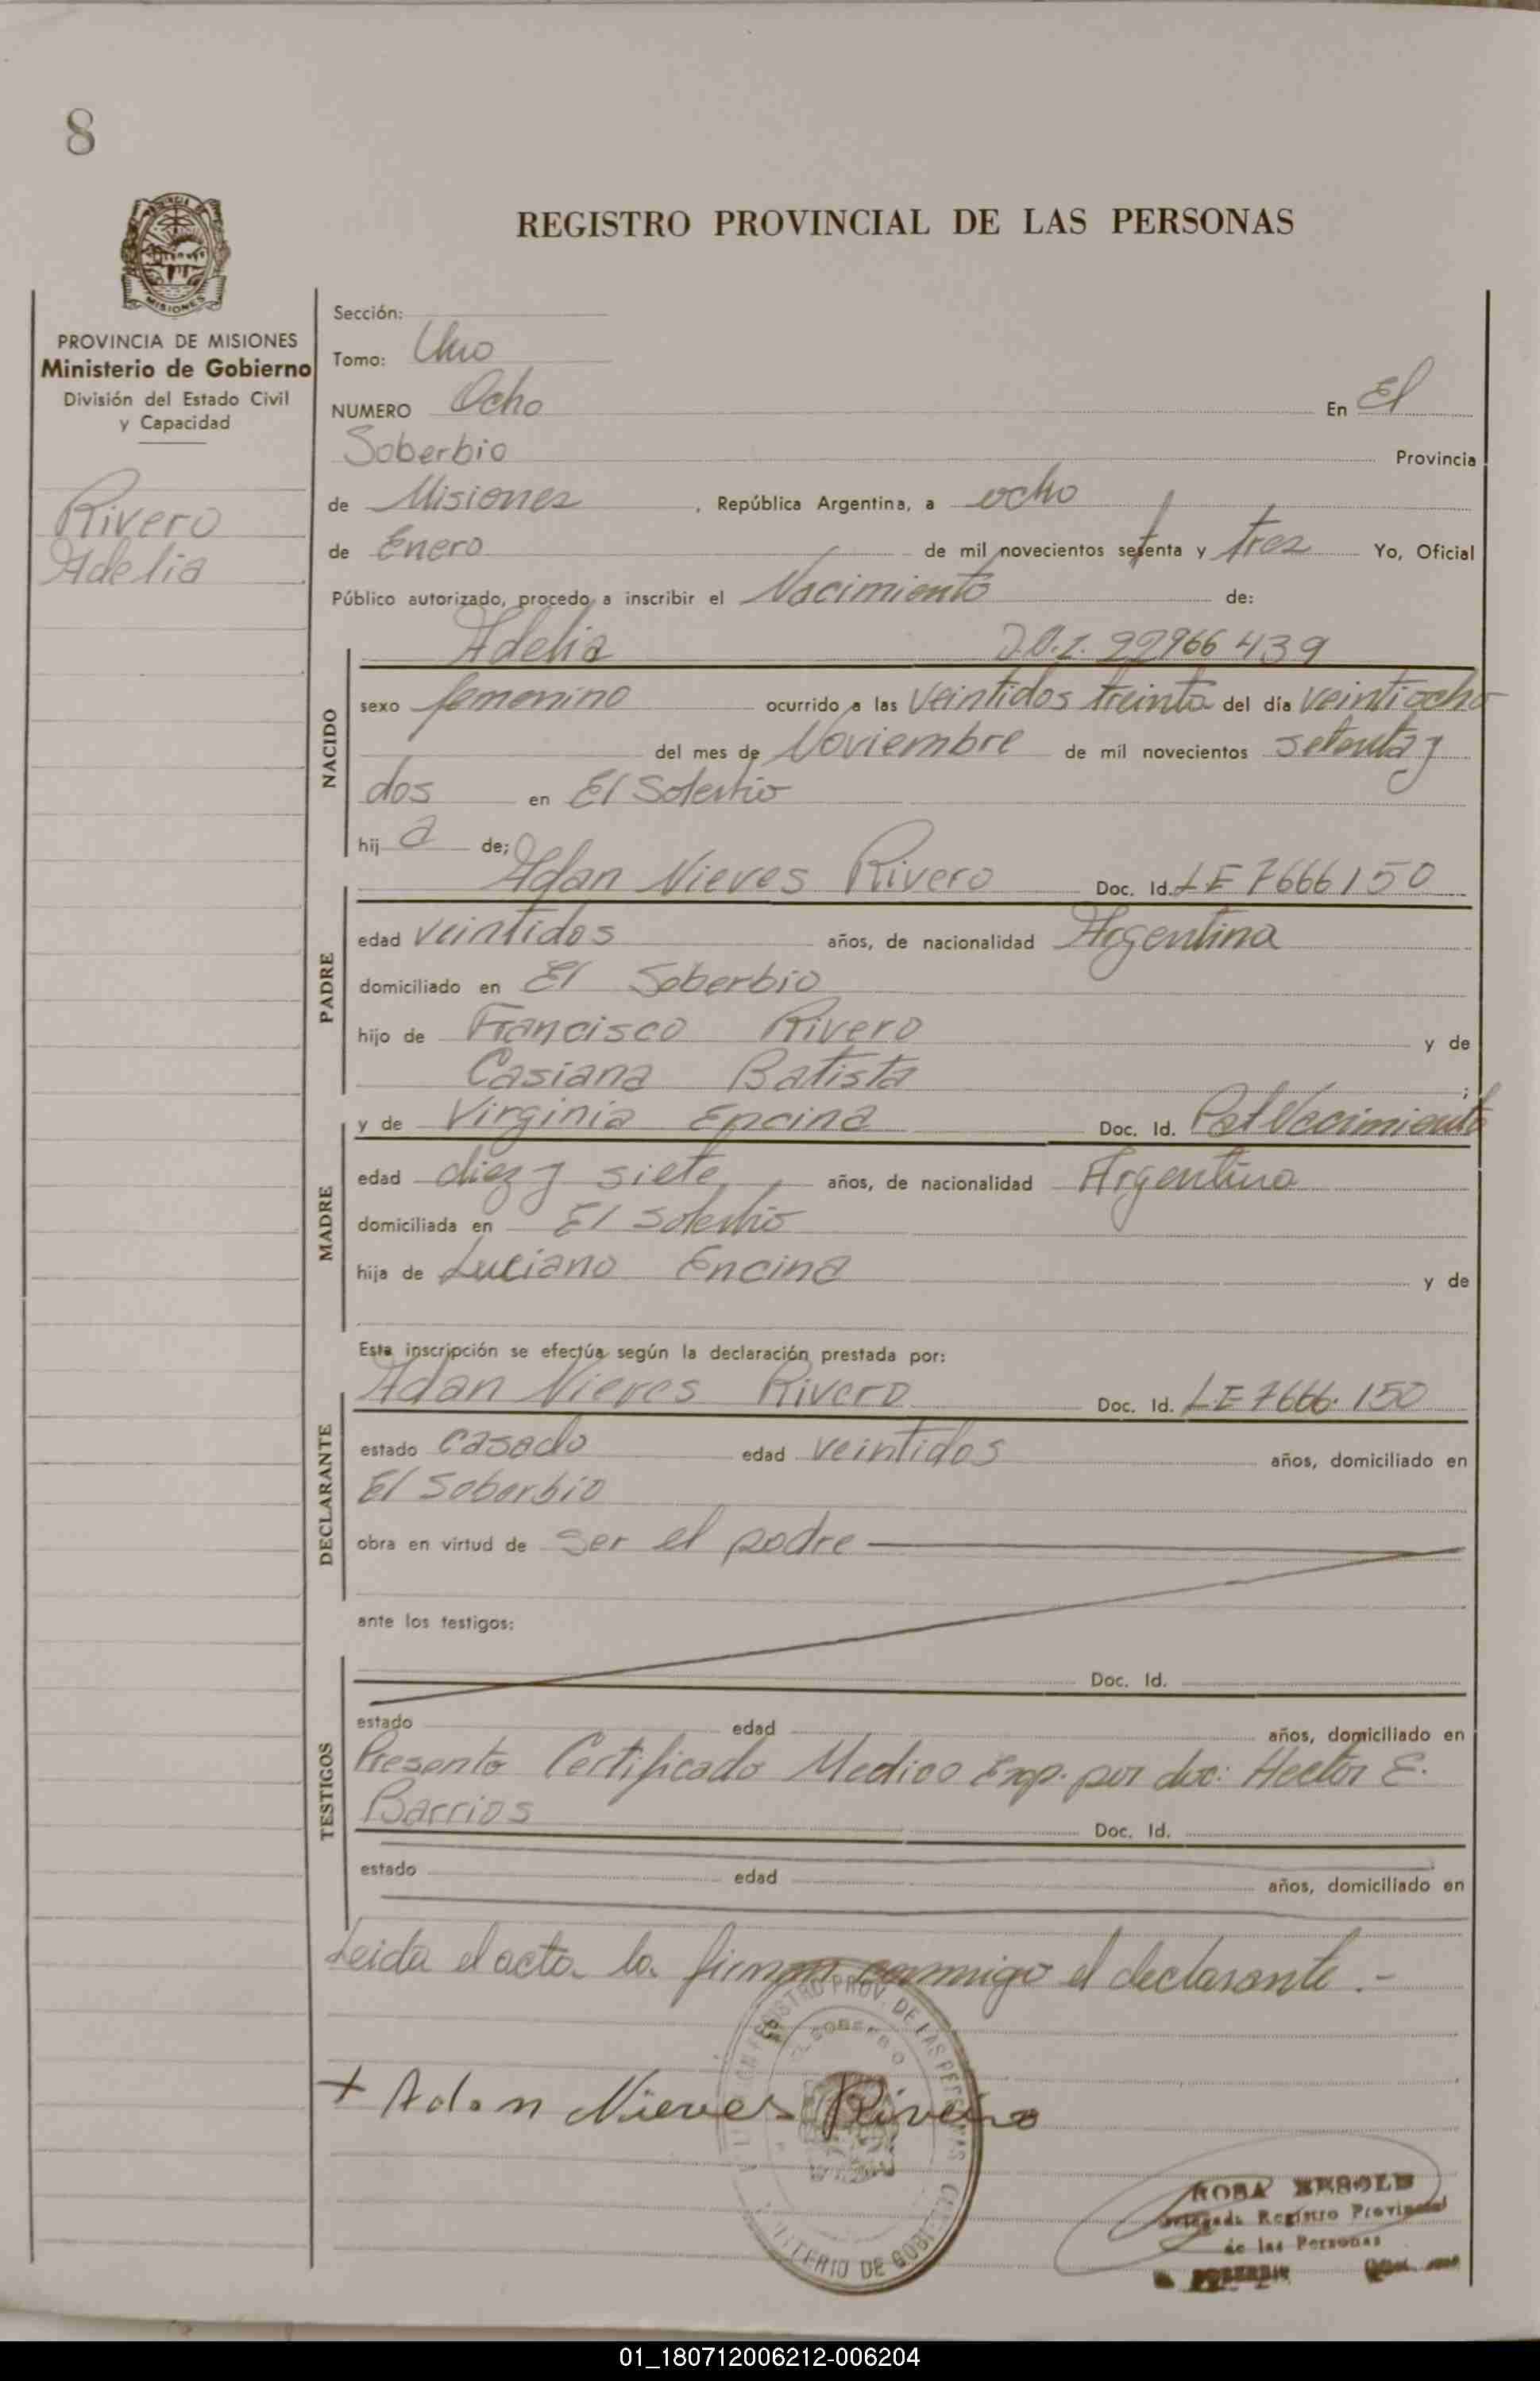 8
REGISTRO PROVINCIAL DE LAS PERSONAS
MISIONES
PROVINCIA DE MISIONES
Ministerio de Gobierno
División del Estado Civil
y Capacidad
Rivero
Adelia
Sección:
Tomo: Uno
NUMERO Ocho En El
Soberbio Provincia
de Misiones, República Argentina, a ocho
de Enero de mil novecientos setenta y tres Yo, Oficial
Público autorizado, procedo a inscribir el Nacimiento de:
Adelia 22966439
NACIDO
sexo femenino ocurrido a las veintidos treinta del día veintiocho
del mes de Noviembre de mil novecientos setenta y
dos en El Soberbio
hij a de;
PADRE
Adan Nieves Rivero Doc. Id. LE 7666150
edad veintidos años, de nacionalidad Argentina
domiciliado en El Soberbio
hijo de Francisco Rivero y de
Casiana Batista ;
MADRE
y de Virginia Encina Doc. Id.
edad diez y siete años, de nacionalidad Argentina
domiciliada en El Soberbio
hija de Luciano Encina y de
Esta inscripción se efectúa según la declaración prestada por:
DECLARANTE
Adan Nieves Rivero Doc. Id. LE 7666.150
estado casado edad veintidos años, domiciliado en
El Soberbio
obra en virtud de ser el padre
ante los testigos:
TESTIGOS
Doc. Id.
estado edad años, domiciliado en
Presento Certificado Medico Exp. por doc: Hector E.
Barrios Doc. Id.
estado edad años, domiciliado en
Leida el acta la firman conmigo el declarante.-
+ Adan Nieves Rivero
REGISTRO PROV. DE LAS PERSONAS
EL SOBERBIO
MINISTERIO DE GOB
ROSA
Delegada Registro Provincial
de las Personas
SOBERBIO
01_180712006212-006204